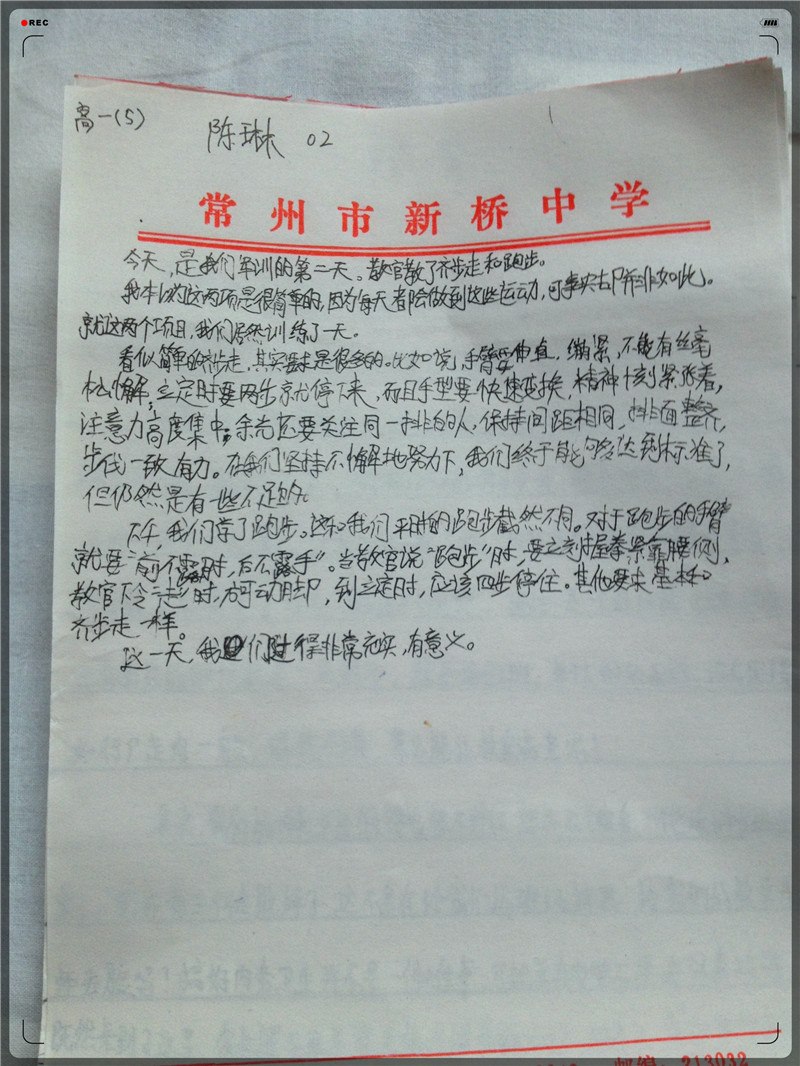 REC
高一(5)
陈琳 02
常州市新桥中学
今天,是我们军训的第二天。教官教了齐步走和跑步。
我本以为这两项是很简单的,因为每天都会做到这些运动,可事实却并非如此。
就这两个项目,我们居然训练了一天。
看似简单的齐步走,其实要求是很多的。比如说,手臂要伸直,绷紧,不能有丝毫
松懈,立定时要两步就停下来,而且手型要快速变换,精神时刻紧张着,
注意力高度集中;余光还要关注同一排的人,保持间距相同,排面整齐,
步伐一致有力。在我们坚持不懈地努力下,我们终于能够达到标准了,
但仍然是有一些不足的。
下午,我们学了跑步。这和我们平时的跑步截然不同。对于跑步的手臂
就要“前不露肘,后不露手”。当教官说“跑步”时,要立刻握拳紧靠腰侧,
教官下令“走”时,方可动脚,到立定时,应该四步停住。其他要求基本和
齐步走一样。
这一天,我们过得非常充实,有意义。
邮编:213032